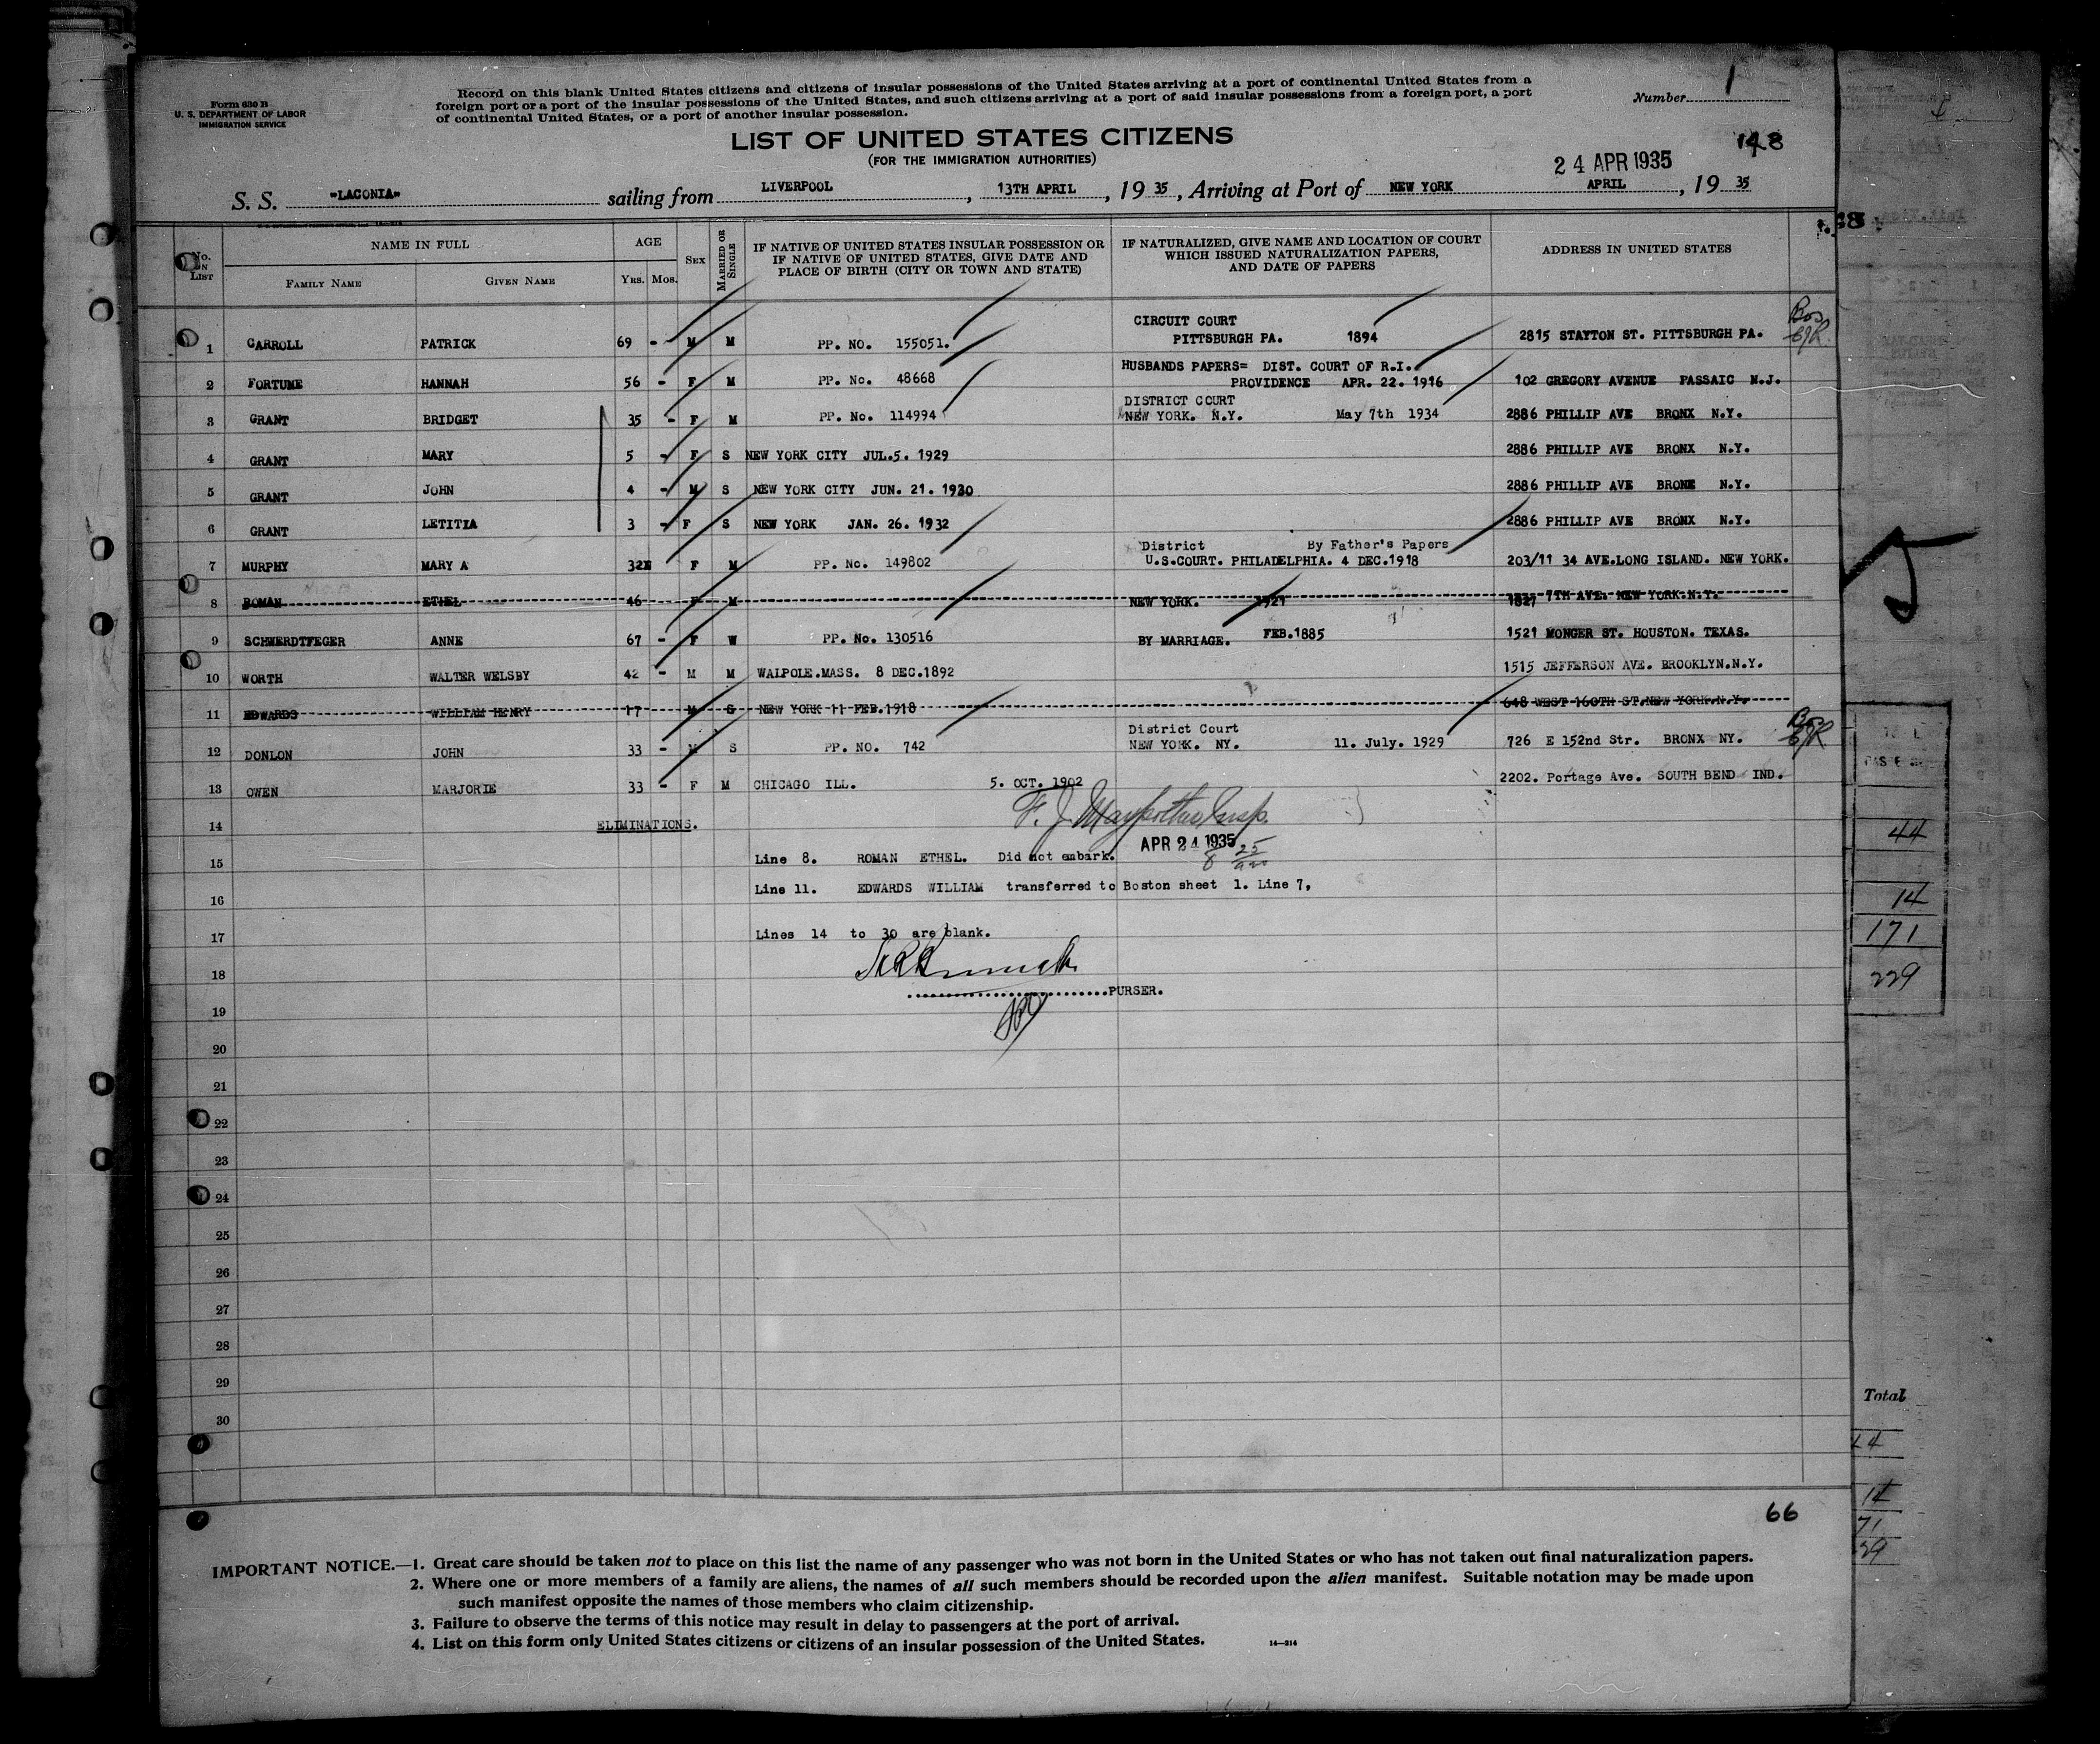 Form 630 B
U. S. DEPARTMENT OF LABOR
IMMIGRATION SERVICE
Record on this blank United States citizens and citizens of insular possessions of the United States arriving at a port of continental United States from a
foreign port or a port of the insular possessions of the United States, and such citizens arriving at a port of said insular possessions from a foreign port, a port
of continental United States, or a port of another insular possession.
Number 1
LIST OF UNITED STATES CITIZENS
(FOR THE IMMIGRATION AUTHORITIES)
148
24 APR 1935
S. S. "LACONIA" sailing from LIVERPOOL, 13TH APRIL, 19 35, Arriving at Port of NEW YORK APRIL, 19 35
No. ON LIST
NAME IN FULL
FAMILY NAME
GIVEN NAME
AGE
YRS. MOS.
SEX
MARRIED OR SINGLE
IF NATIVE OF UNITED STATES INSULAR POSSESSION OR
IF NATIVE OF UNITED STATES, GIVE DATE AND
PLACE OF BIRTH (CITY OR TOWN AND STATE)
IF NATURALIZED, GIVE NAME AND LOCATION OF COURT
WHICH ISSUED NATURALIZATION PAPERS,
AND DATE OF PAPERS
ADDRESS IN UNITED STATES
CIRCUIT COURT
1 CARROLL PATRICK 69 - M M PP. NO. 155051. PITTSBURGH PA. 1894 2815 STAYTON ST. PITTSBURGH PA.
HUSBANDS PAPERS= DIST. COURT OF R.I.
2 FORTUNE HANNAH 56 - F M PP. No. 48668 PROVIDENCE APR. 22. 1916 102 GREGORY AVENUE PASSAIC N.J.
DISTRICT COURT
3 GRANT BRIDGET 35 - F M PP. No. 114994 NEW YORK. N.Y. May 7th 1934 2886 PHILLIP AVE BRONX N.Y.
4 GRANT MARY 5 - F S NEW YORK CITY JUL.5. 1929 2886 PHILLIP AVE BRONX N.Y.
5 GRANT JOHN 4 - M S NEW YORK CITY JUN. 21. 1930 2886 PHILLIP AVE BRONX N.Y.
6 GRANT LETITIA 3 - F S NEW YORK JAN. 26. 1932 2886 PHILLIP AVE BRONX N.Y.
District By Father's Papers
7 MURPHY MARY A 32 F M PP. No. 149802 U.S.COURT. PHILADELPHIA. 4 DEC.1918 203/11 34 AVE.LONG ISLAND. NEW YORK.
8 ROMAN ETHEL 46 F M NEW YORK. 1921 1827 7TH AVE. NEW YORK.N.Y.
9 SCHWERDTFEGER ANNE 67 - F W PP. No. 130516 BY MARRIAGE. FEB.1885 1521 MONGER ST. HOUSTON. TEXAS.
10 WORTH WALTER WELSBY 42 - M M WALPOLE.MASS. 8 DEC.1892 1515 JEFFERSON AVE. BROOKLYN.N.Y.
11 EDWARDS WILLIAM HENRY 17 M S NEW YORK 11 FEB.1918 648 WEST 160TH ST.NEW YORK.N.Y.
District Court
12 DONLON JOHN 33 - M S PP. NO. 742 NEW YORK. NY. 11. July. 1929 726 E 152nd Str. BRONX NY.
13 OWEN MARJORIE 33 - F M CHICAGO ILL. 5. OCT. 1902 2202. Portage Ave. SOUTH BEND IND.
14 ELIMINATIONS.
APR 24 1935
15 Line 8. ROMAN ETHEL. Did not embark.
16 Line 11. EDWARDS WILLIAM transferred to Boston sheet 1. Line 7,
17 Lines 14 to 30 are blank.
18
PURSER.
19
20
21
22
23
24
25
26
27
28
29
30
44
14
171
229
Total
66
IMPORTANT NOTICE.—1. Great care should be taken not to place on this list the name of any passenger who was not born in the United States or who has not taken out final naturalization papers.
2. Where one or more members of a family are aliens, the names of all such members should be recorded upon the alien manifest. Suitable notation may be made upon
such manifest opposite the names of those members who claim citizenship.
3. Failure to observe the terms of this notice may result in delay to passengers at the port of arrival.
4. List on this form only United States citizens or citizens of an insular possession of the United States.
14—214